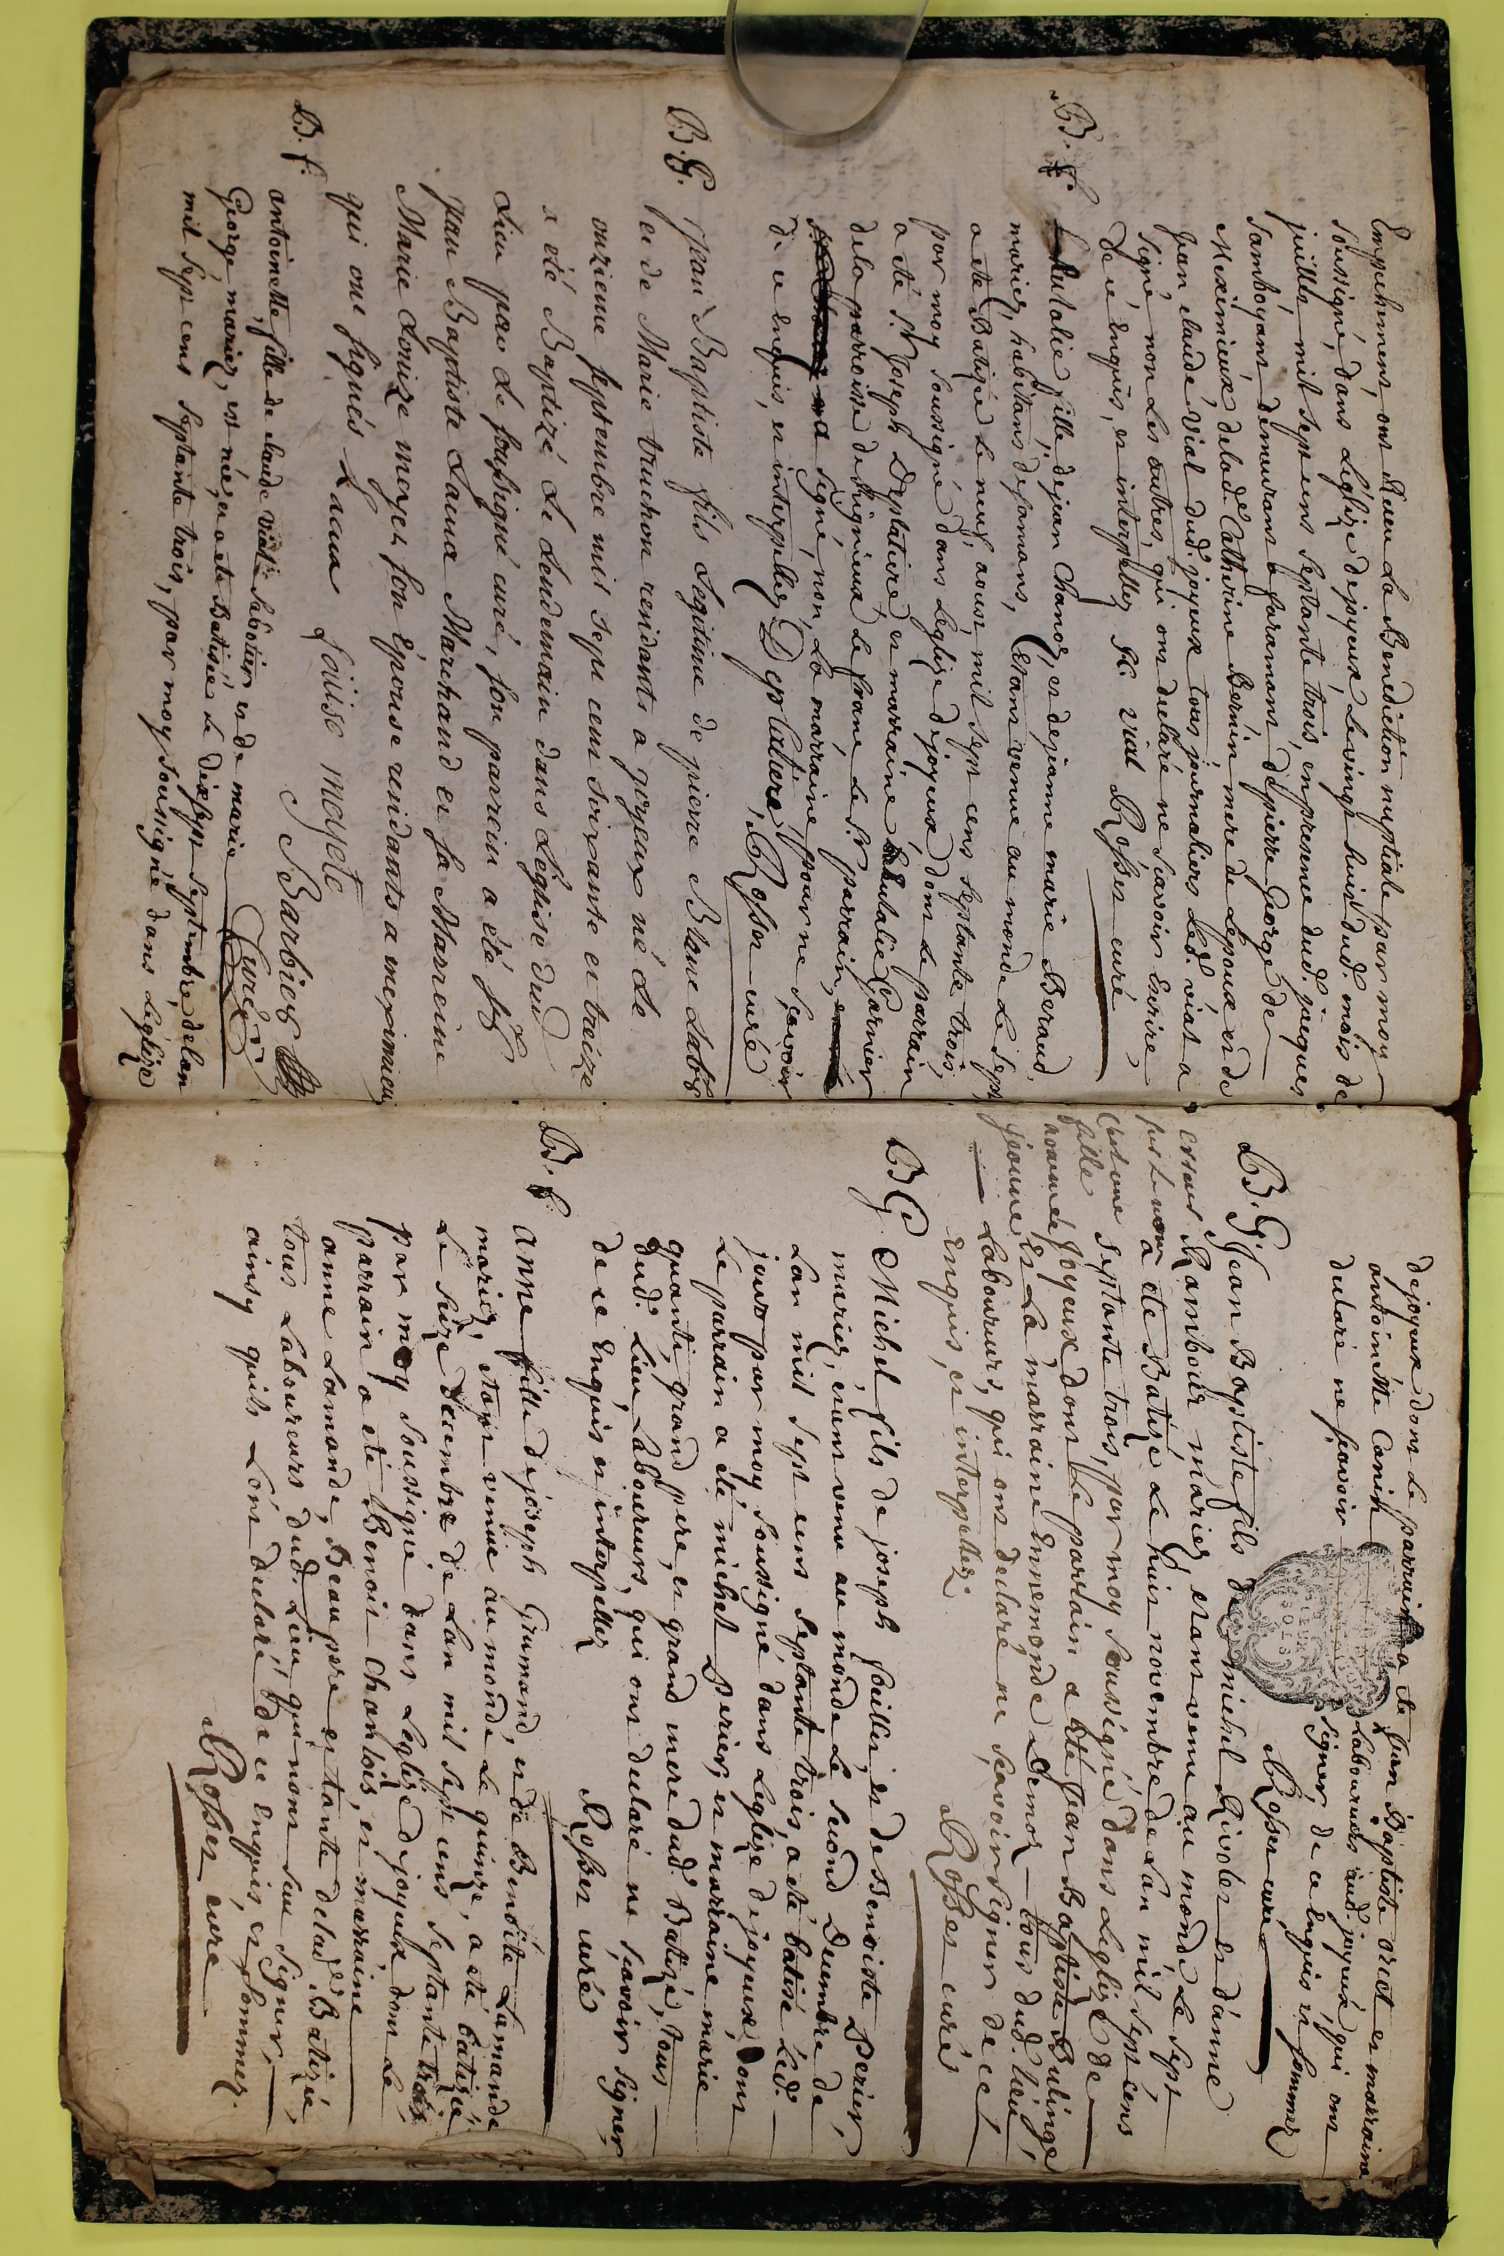 Empechement, ont Reccu La Benediction nuptiale par moy
soussigné, dans L'église dejoyeux, Le vingt huit dud. mois de
juillet, mil sept cens septante trois, en presence dud. jacques
Samboyant, demeurant a faramant, depierre George de
Meximieux, delad.e Catherine Bernin mere de Lepoux et de
jean claude vial dud. joyeux tous journaliers Led. vial a
signé, non Les autres, qui ont declaré ne scavoir Ecrire,
de ce Enquis, et interpellez jC vial Rosset curé
B. f. Eulalie fille dejean Chanoz, et dejeanne marie Beraud,
mariez, habitans de joyeux, Etant venue au monde Le sept
a ete Batizée Le neuf, aoust mil sept cens septante trois,
par moy soussigné dans Leglize dejoyeux, dont Le parrain
a eté sr. Joseph Deplatiere, et marraine Eulalie Garnier
dela parroisse de Rignieux Le franc, Le sr. parrain,
a signé, non, La marraine, pour ne scavoir
de ce enquis, et interpellez Deplatiere, Rosset curé
B. G. jean Baptiste fils Legitime de pierre Blanc
et de Marie truchon residants a joyeux né Le
onzieme septembre mil sept cent soixante et treize
a été Baptizé Le Lendemain dans L'eglise dud
Lieu par Le soussigné curé, son parrein a été sr
jean Baptiste Laura Marchand et sa Marreine
Marie Louize mayet son Epouse residants a meximieu
qui ont signés Laura Louise mayete
Barbier
Curé
B. f. antoinette, fille de claude vial Sabotier et de marie
George, mariez, est née, a ete Batisée Le dixsept septembre, delan
mil sept cens septante trois, par moy soussigné dans Leglize
dejoyeux dont Le parrain a ete jean Baptiste oriot et marraine
antoinette Canis Laboureurs aud. joyeux, qui ont
declaré ne scavoir signer, de ce Enquis et sommez
Rosset curé
B. G. Jean Baptiste fils de michel Rivolet et d'anne
Rambour mariez, etant venu au monde, Le sept
a ete Batizé Le huit novembre de Lan mil sept cens
septante trois, par moy soussigné dans Leglize de
joyeux, dont Le parrain a eté jean Baptiste Bulinge
et La marraine Ennemonde Bernoz tous dud. Lieu,
Laboureurs, qui ont declaré ne scavoir signer de ce
Enquis, et interpellez Rosset curé
erreur
sur Le nom
C'est une
fille
nommée
jeanne
B G Michel fils de joseph et de Benoiste Perier,
mariez, etant venu au monde Le second Decembre de
Lan mil sept cens septante trois, a eté batisé Led.
jour par moy soussigné dans Leglize dejoyeux, dont
Le parrain a eté michel Perier, et marraine marie
quanti, grand pere, et grand mere dud. Batizé, tous
dud. Lieu, Laboureurs, qui ont declaré ne scavoir signer
de ce Enquis et interpellez Rosset curé
B. f. Anne fille dejoseph Gramond, et de Benoite Lamande
mariez, etant venüe au monde Le quinze, a eté batizée,
Le seize Decembre de Lan mil sept cens septante trois
par moy soussigné dans Leglize dejoyeux, dont Le
parrain a eté Benoit chanlois, et marraine
anne Lamande, Beau pere et tante delad. Batizée,
tous Laboureurs, dud. Lieu, qui n'ont sceu signer,
ainsy quils L'ont declaré de ce Enquis, et sommez.
Rosset curé